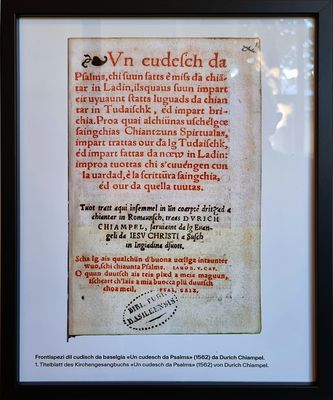 Vn cudesch da
Psalms, chi suun fatts è miss da chiãtar
in Ladin, ilsquaus suun impart
eir uyuaunt statts luguads da chiantar
in Tudaischk, éd impart brichia.
Proa quai alchiünas uschélgœ
saingchias Chiantzuns Spirtualas,
impart trattas our da lg Tudaischk,
éd impart fattas da nœw in Ladin:
improa tuottas chi s'cuuéngen cun
la uardad, è la scrittüra saingchia,
éd our da quella tuutas.
Tuot tratt aqui insemmel in ün coarpœ drizad a
chiantar in Romaunsch, tras DVRICH
CHIAMPEL, saruiaint da lg Euangeli
da IESV CHRISTI a Susch
in Ingiadina dsuott.
Scha lg ais qualchün d'buona uœlga intaunter
wuo, schi chiaunta Psalms. IACOB V. CAP.
O quaun duulsch ais teis plæd a meie maguun,
ilscheart ch'lais a mia buocca plü duulsch
choa meil. PSAL. CXIX.
BIBL. PUBL.
BASILEENSIS
Frontispezi dil cudisch da baselgia «Un cudesch da Psalms» (1562) da Durich Chiampel.
1. Titelblatt des Kirchengesangbuchs «Un cudesch da Psalms» (1562) von Durich Chiampel.